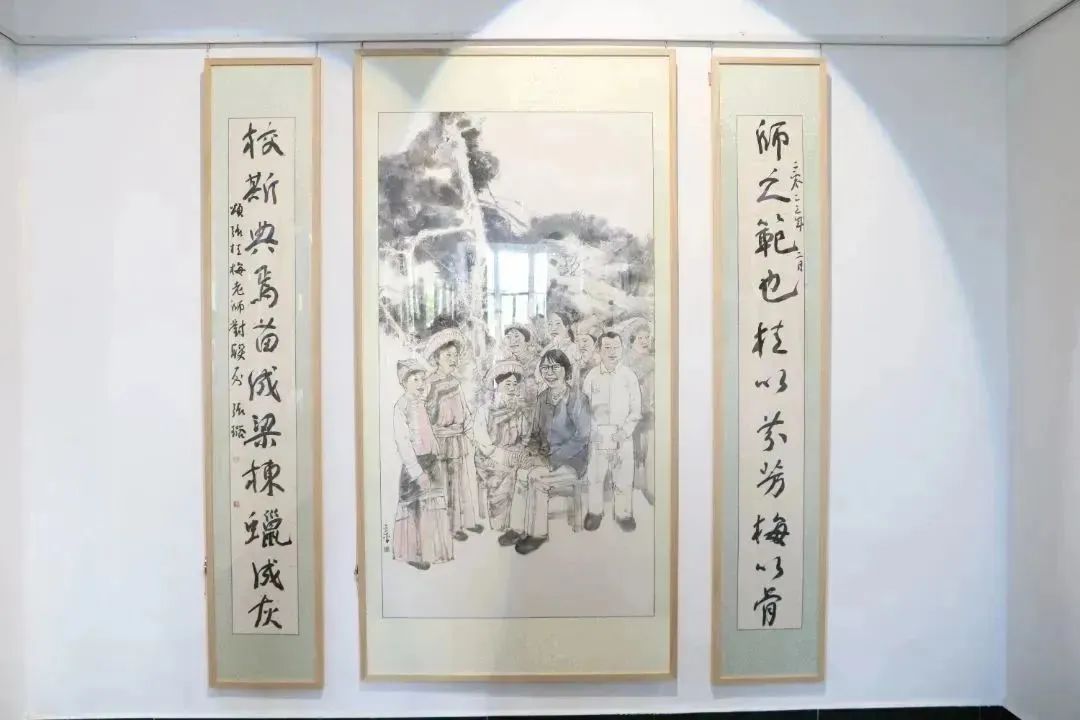 師之範也桂以芬芳梅以骨
二零二三年二月
校斯典焉苗成梁棟蠟成灰
頌張桂梅老師對聯